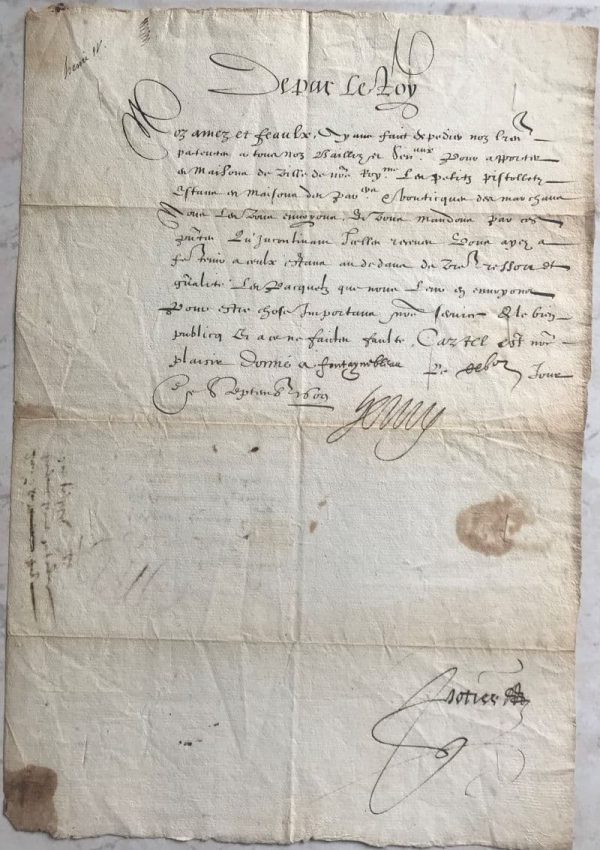 henri IV.
De par Le Roy
Noz amez et feaulx, Ayant faict expedier noz lres
patentes a tous noz Baillifz et Senaux Pour apporter
es Maisons de Ville de nre Roy me Les petitz pistolletz
Estans es Maisons des par ers & bouticques des marchans
Nous Les vous envoyons Et vous mandons par ces
pntes Qu'incontinant Icelles receues Vous ayez a
fe tenir a ceulx estans au dedans de vre ressort et
gnalité Les pacquetz que nous leur en envoyons
Pour estre chose Importans nre service & le bien
publicq Et a ce ne faictes faulte, Car tel est nre
plaisir Donné a fontainebleau Le Jour
de Septembre 1609
Henry
Potier